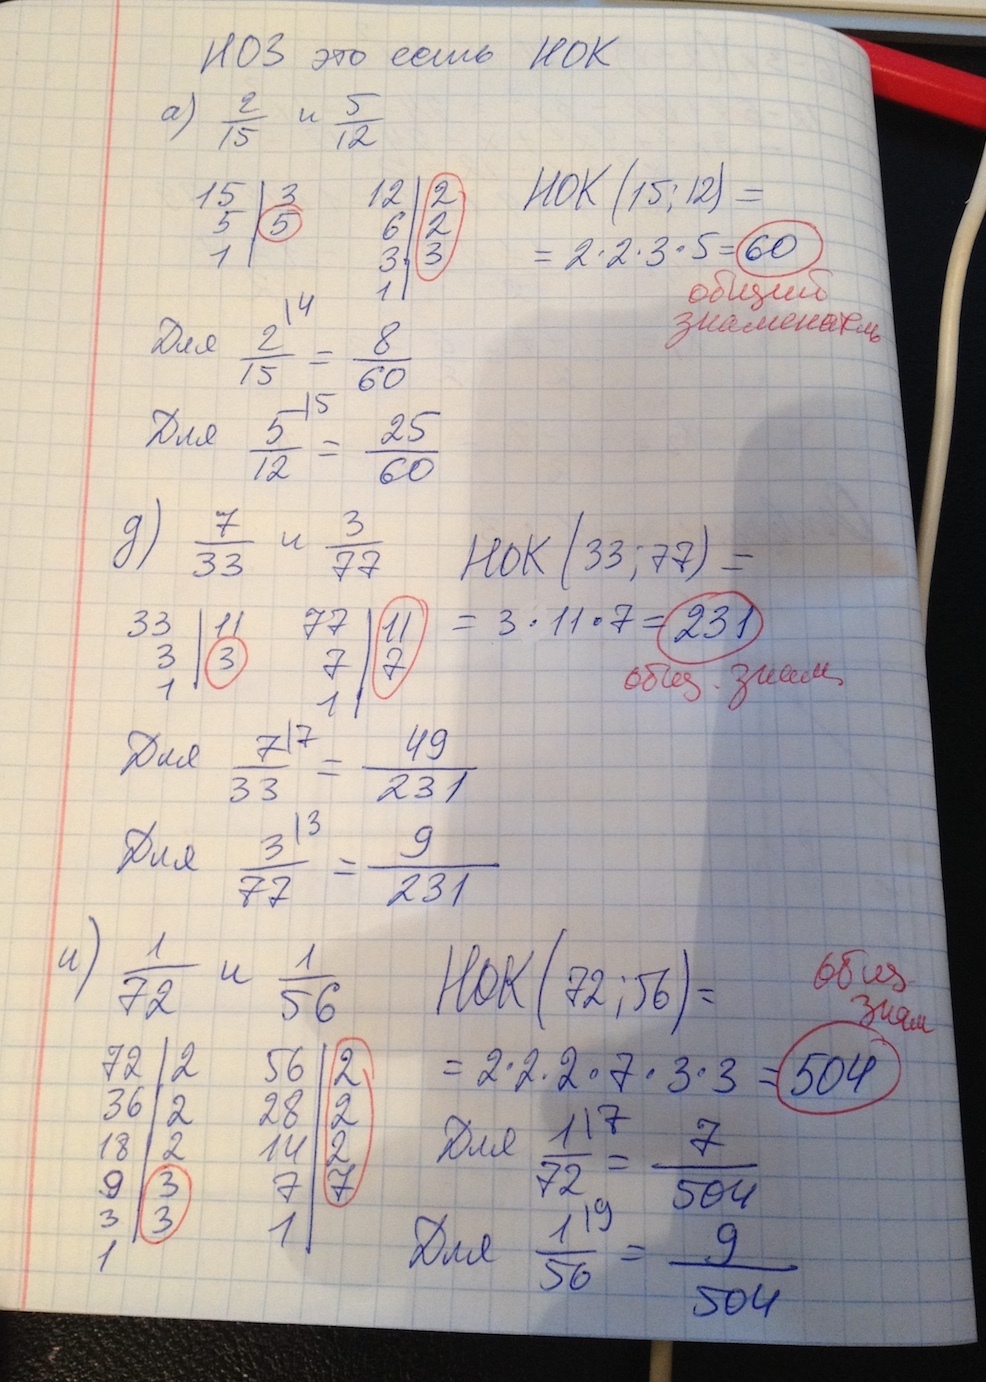 НОЗ это есть НОК
а) 2/15 и 5/12
15 | 3   12 | 2   НОК (15; 12) =
5 | 5   6 | 2   = 2·2·3·5 = 60
1   3 | 3   общий
1 |   знаменатель
Для 2/15 |4 = 8/60
Для 5/12 |5 = 25/60
д) 7/33 и 3/77   НОК (33; 77) =
33 | 11   77 | 11   = 3·11·7 = 231
3 | 3   7 | 7   общ. знам.
1   1
Для 7/33 |7 = 49/231
Для 3/77 |3 = 9/231
и) 1/72 и 1/56   НОК (72; 56) =   общ
знам
72 | 2   56 | 2   = 2·2·2·7·3·3 = 504
36 | 2   28 | 2
18 | 2   14 | 2   Для 1/72 |7 = 7/504
9 | 3   7 | 7
3 | 3   1   Для 1/56 |9 = 9/504
1